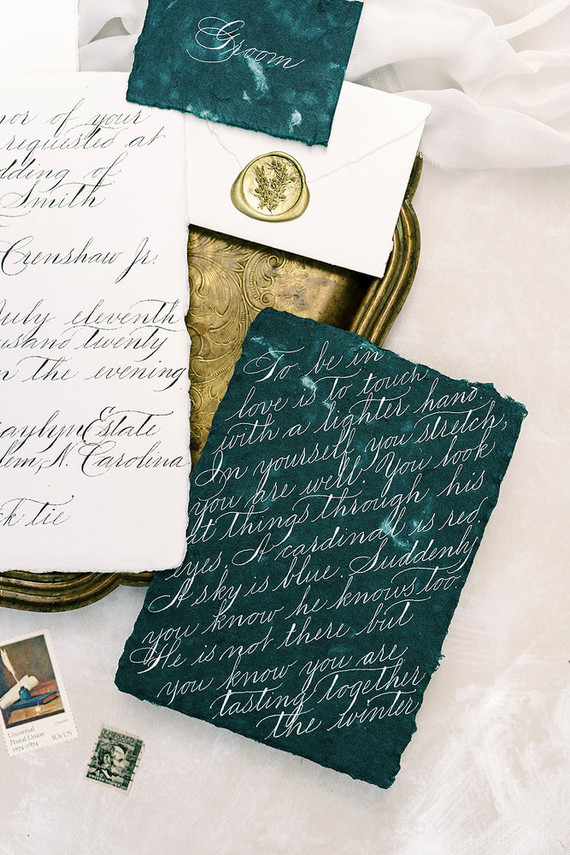 Groom
nor of your
requested at
dding of
Smith
Crenshaw Jr.
July eleventh
usand twenty
n the evening
aylyn Estate
lem, N. Carolina
k tie
To be in
love is to touch
with a lighter hand.
In yourself you stretch,
you are well. You look
at things through his
eyes. A cardinal is red.
A sky is blue. Suddenly
you know he knows too.
He is not there but
you know you are
tasting together
the winter
Universal
Postal Union
1874-1974 10c US